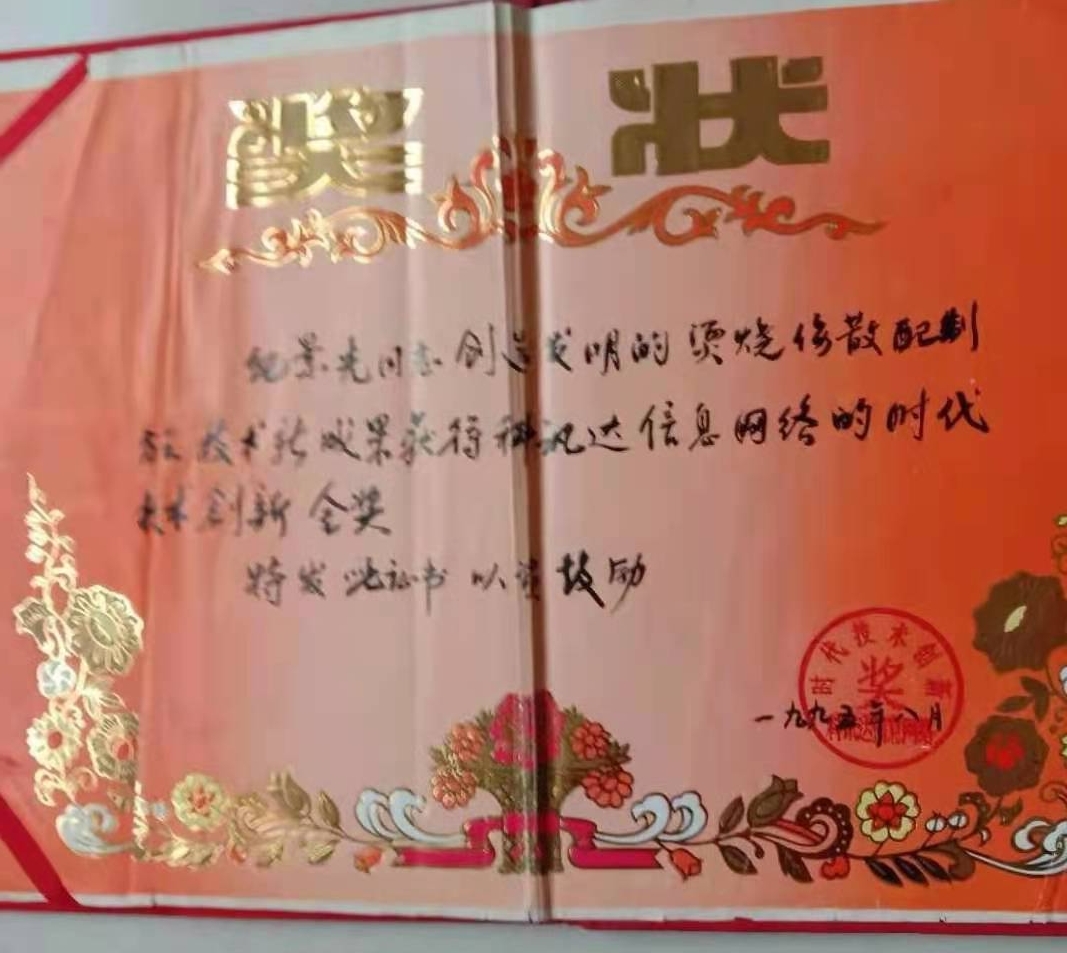 奖状
纪景光同志创造发明的烫烧伤散配制
技术新成果获得科讯达信息网络的时代
技术创新金奖
特发此证书以资鼓励
时代技术创新
奖
一九九五年八月